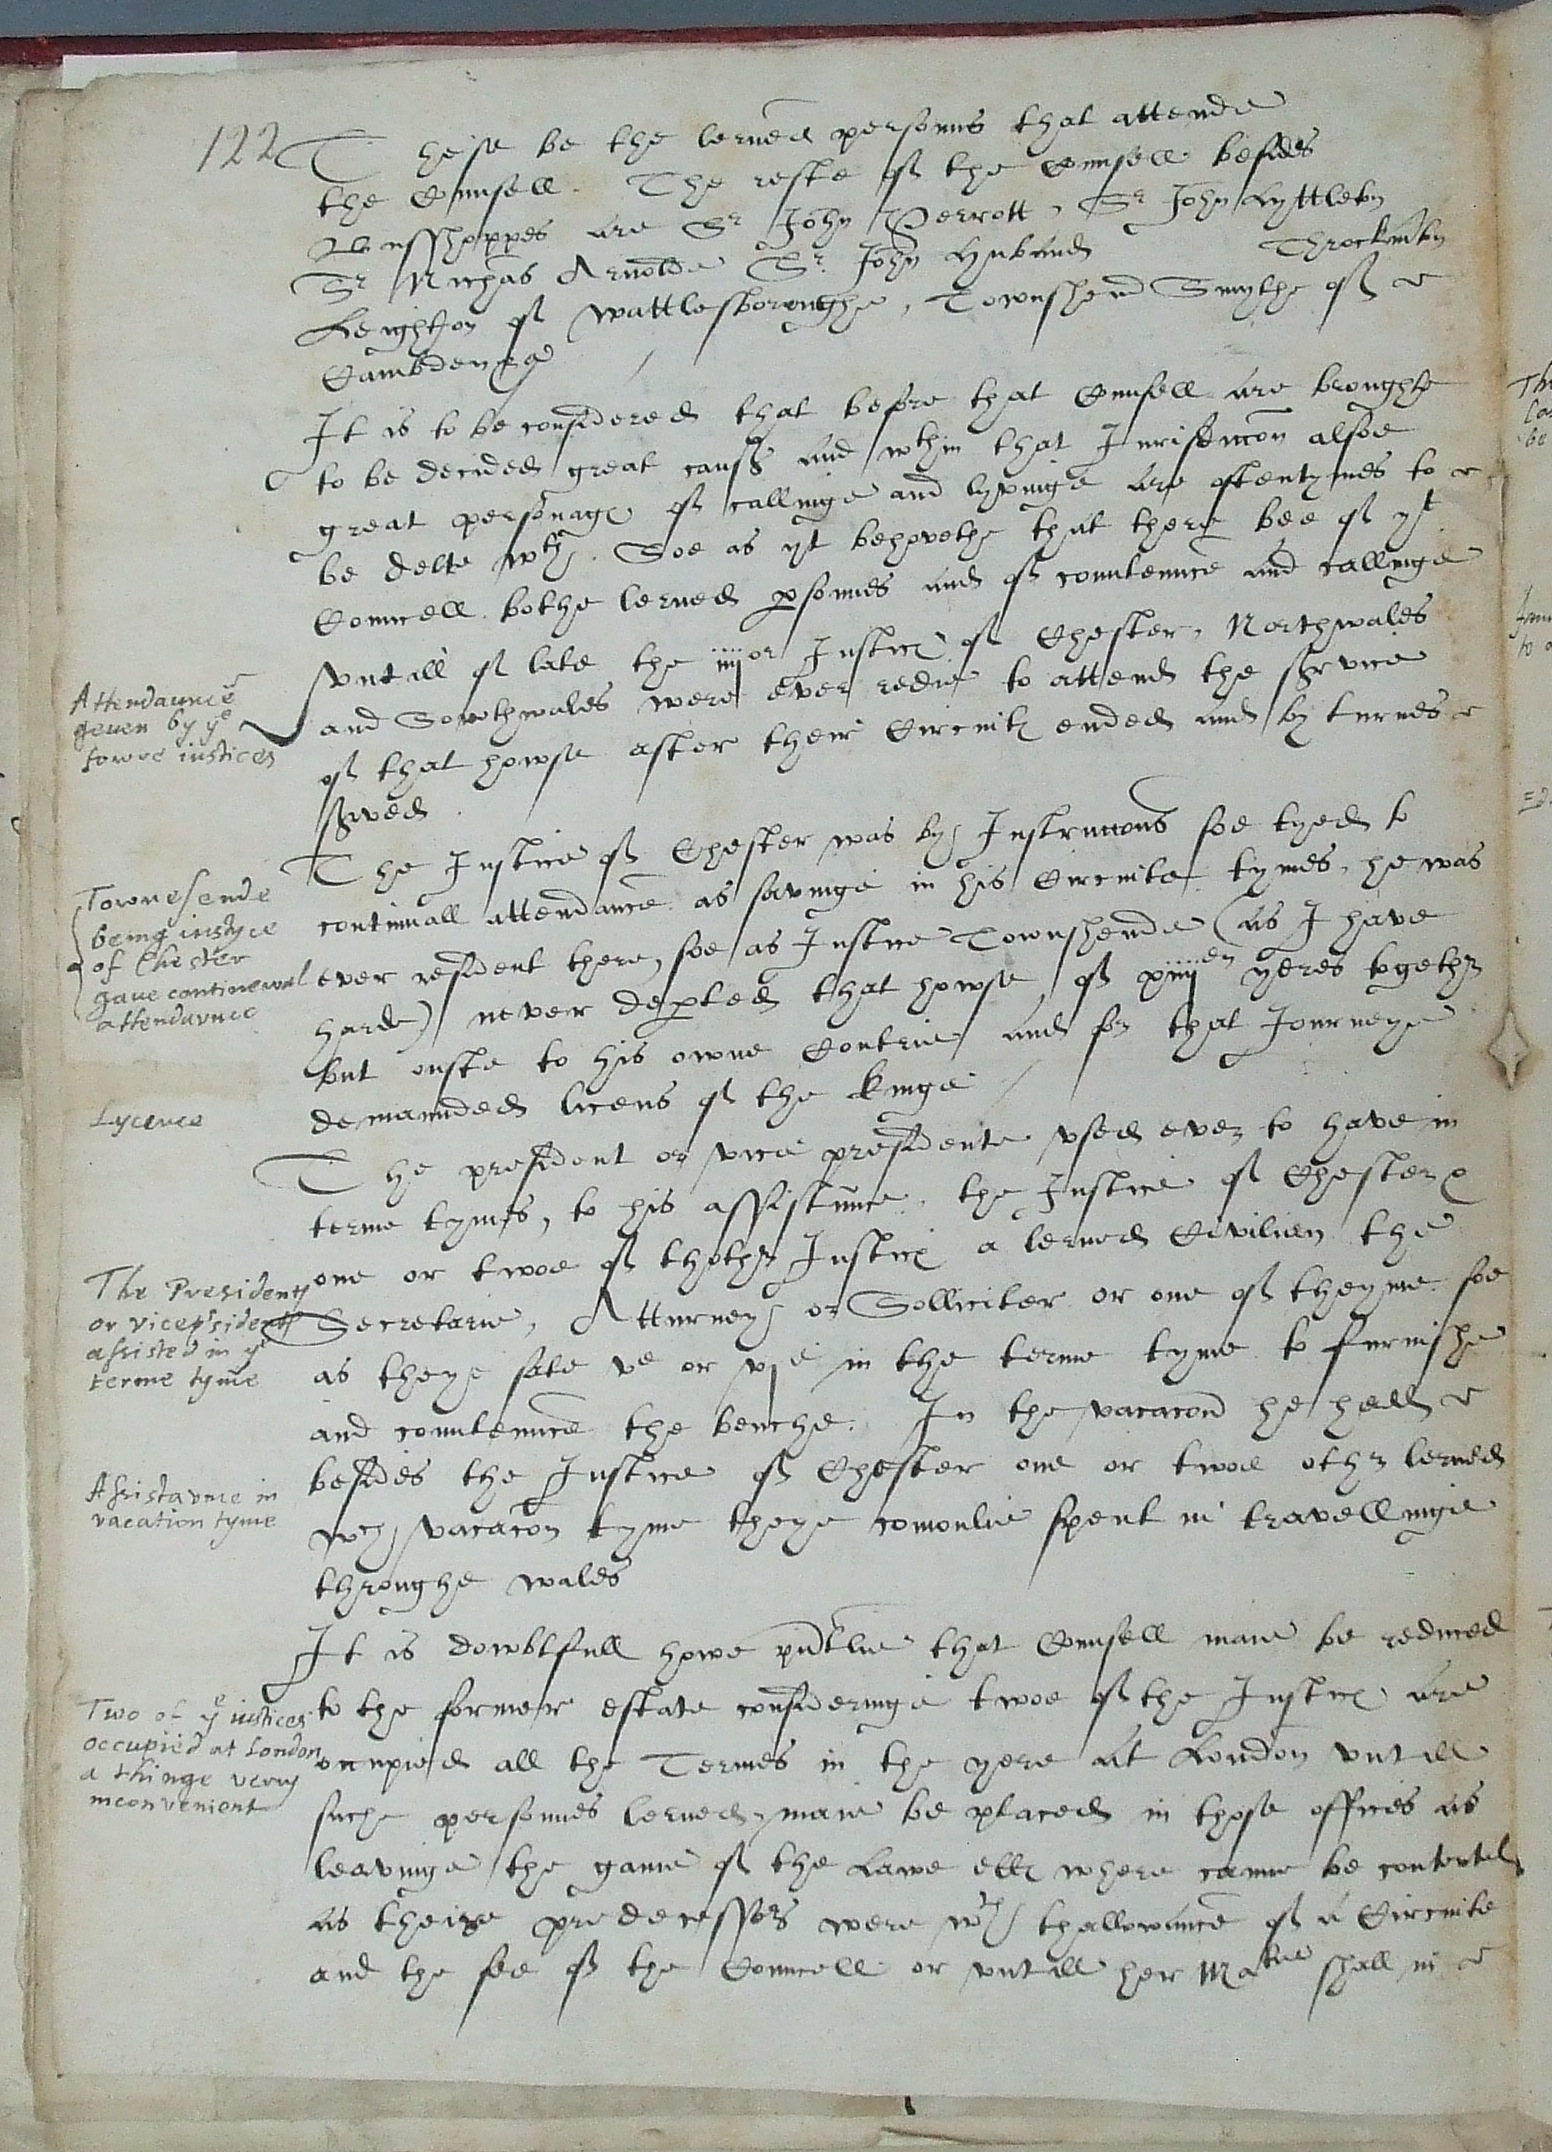 122
These be the lerned personns that attende
the Counsell. The reste of the Counsell besides
Busshoppes are Sr John Perrott, Sr John Lyttleton
Sr Nichas Arnolde Sr John Huband Throckmton
Leighton of Wattlesboroughe, Townshend Smythe of
Cambden
It is to be considered that before that Counsell are broughte
to be decided great causs and wthin that Jurisdiccon alsoe
great personags of callinge and lyvinge are oftentymes to
be delte wth. Soe as yt behovethe that there bee of yt
Councell bothe lerned psonnes and of countennce and callinge
vntill of late the iiijor Justics of Chester, Northwales
and Sowthwales were ever redie to attend the service
of that howse after their Circuits ended and by turnes
served.
Attendaunce
geuen by ye
fowre iustices
The Justice of Chester was by Instruccons soe tyed to
continuall attendance as savinge in his Circuite tymes, he was
ever resident there, soe as Justice Townshende (as I have
harde) never depted that howse, of xiiijen yeres togethr
but onste to his owne Contrie and for that Journeye
demaunded licens of the kinge
Townesende
being iustyce
of Chester
gaue continewal
attendaunce
Lycence
The president or vice presidente vsed ever to have in
terme tymes, to his assistunce, the Justice of Chester
one or twoe of thothr Justics a lerned Civilien the
Secretarie, Atturney or Solliciter or one of theyme soe
as theye sate ve or vje in the terme tyme to furnishe
and countennce the benche. In the vacacon he held
besides the Justice of Chester one or twoe othr lerned
wch vacacon tyme theye comonlie spent in travellinge
throughe wales
The Presidents
or vicepsidents
assisted in ye
terme tyme
Assistaunce in
vacation tyme
It is dowbtfull howe pntlie that Counsell maie be reduced
to the former estate consideringe twoe of the Justics are
occupied all the Termes in the yere at London vntill
suche personnes lerned maie be placed in those offices as
leavinge the gaine of the Lawe ells where canne be contented
as theire predecessors were wth thallowance of a Circuite
and the fee of the Councell or vntill her Matie shall in
Two of ye iustices
occupied at London
a thinge very
inconvenient